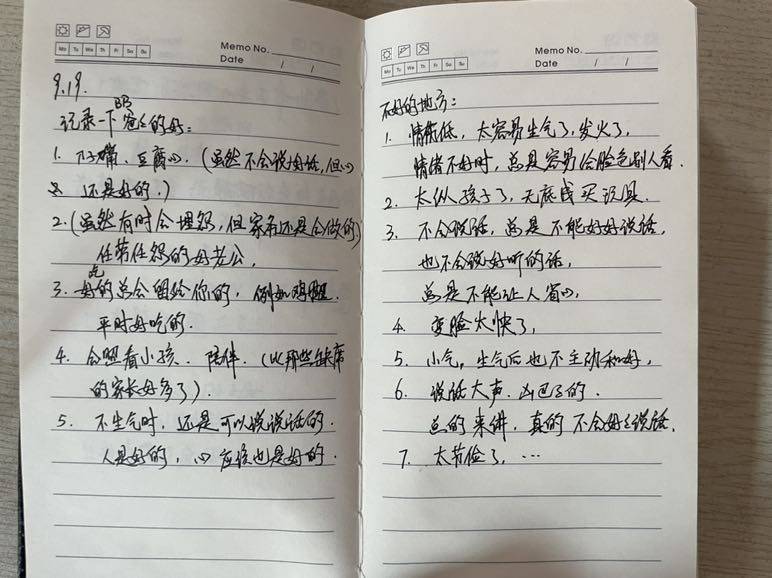 Mo Tu We Th Fr Sa Su
Memo No.
Date / /
9.19.
记录一下爸爸的好:
1. 刀子嘴、豆腐心.(虽然不会说好话,但心
还是好的.)
2.(虽然有时会埋怨,但家务还是会做的)
任劳任怨的好老公.
3. 好吃的总会留给你的, 例如鸡腿.
平时好吃的.
4. 会照看小孩. 陪伴.(比那些缺席
的家长好多了).
5. 不生气时, 还是可以说说话的.
人是好的, 心应该也是好的.
Mo Tu We Th Fr Sa Su
Memo No.
Date / /
不好的地方:
1. 情商低, 太容易生气了, 发火了,
情绪不好时, 总是容易给脸色别人看.
2. 太纵孩子了, 无底线买玩具.
3. 不会说话, 总是不能好好说话,
也不会说好听的话,
总是不能让人省心,
4. 变脸太快了,
5. 小气, 生气后也不主动和好,
6. 说话大声. 凶巴巴的.
总的来讲, 真的不会好好说话.
7. 太节俭了, …